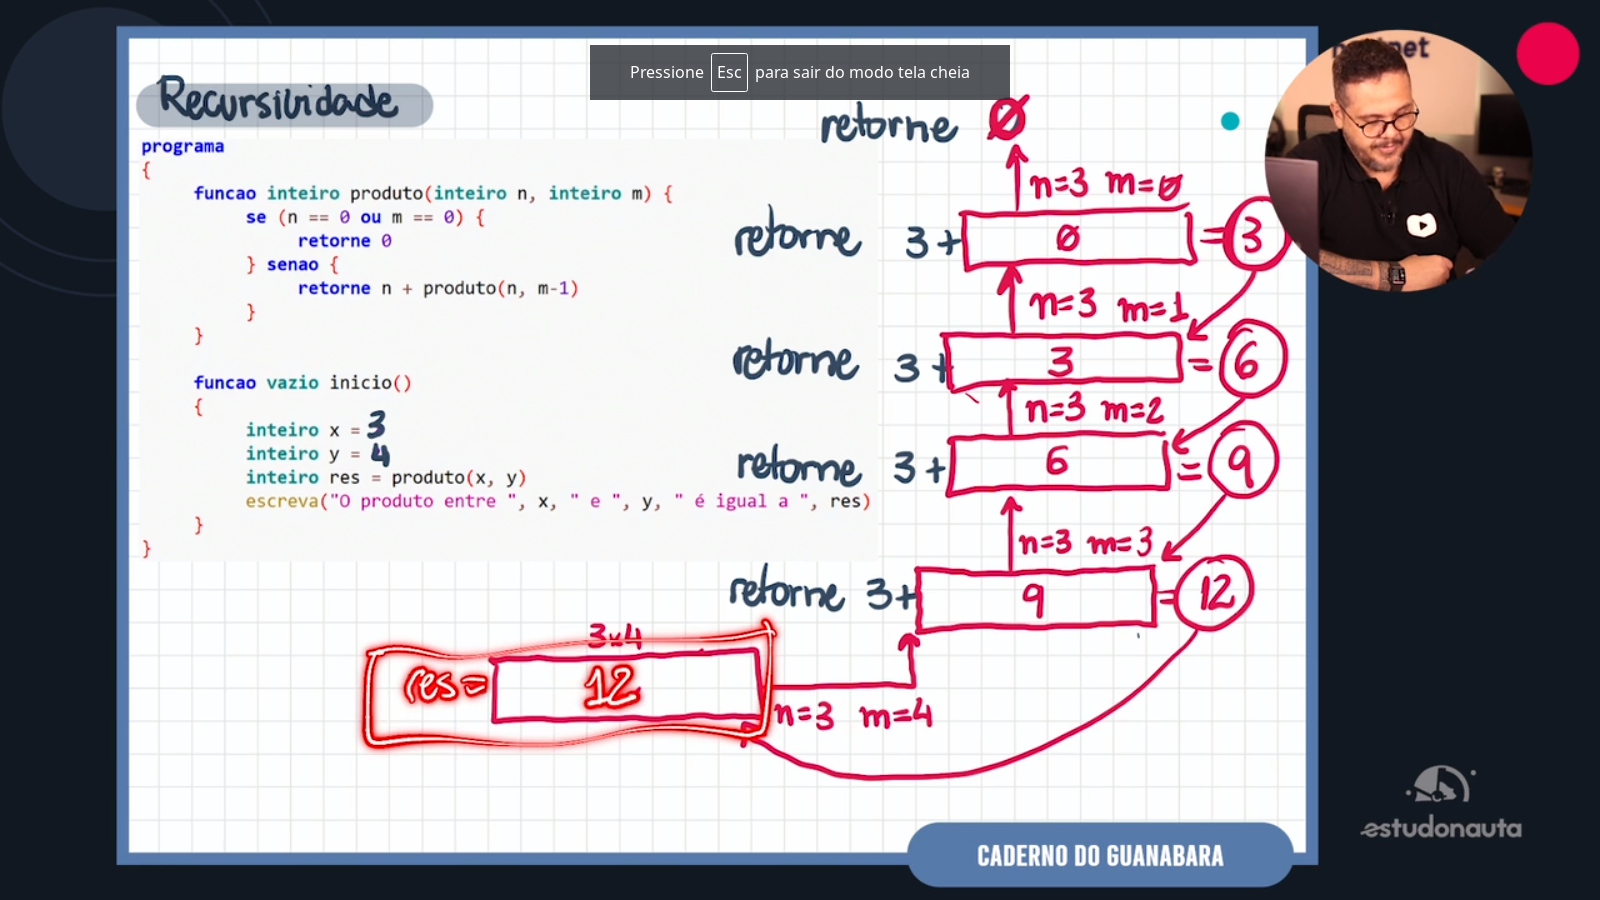 Pressione Esc para sair do modo tela cheia
Recursividade
programa
{
funcao inteiro produto(inteiro n, inteiro m) {
se (n == 0 ou m == 0) {
retorne 0
} senao {
retorne n + produto(n, m-1)
}
}
funcao vazio inicio()
{
inteiro x = 3
inteiro y = 4
inteiro res = produto(x, y)
escreva("O produto entre ", x, " e ", y, " é igual a ", res)
}
}
retorne 0
n=3 m=0
retorne 3+ 0 = 3
n=3 m=1
retorne 3+ 3 = 6
n=3 m=2
retorne 3+ 6 = 9
n=3 m=3
retorne 3+ 9 = 12
3x4
res= 12
n=3 m=4
estudonauta
CADERNO DO GUANABARA